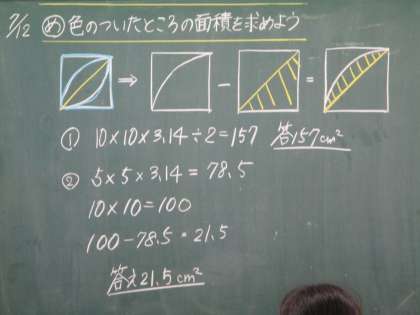 7/12 め 色のついたところの面積を求めよう
⇒ − =
① 10×10×3.14÷2=157 答157cm²
② 5×5×3.14=78.5
10×10=100
100-78.5=21.5
答え21.5cm²